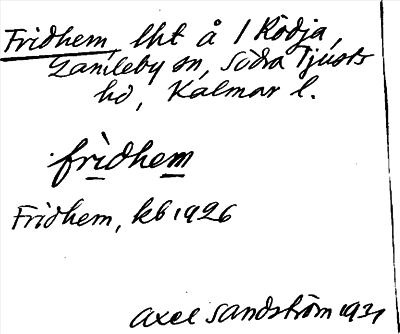 Fridhem, lht å 1 Rödja,
Gamleby sn, Södra Tjusts
hd, Kalmar l.
frìdhem
Fridhem, kb 1926
Axel Sandström 1931